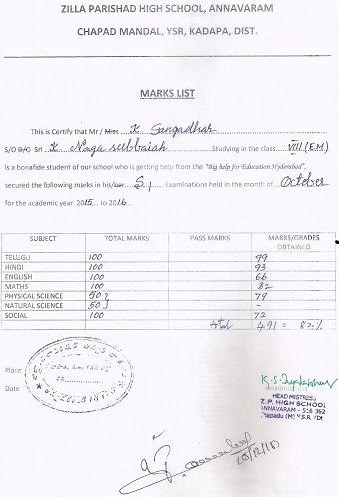 ZILLA PARISHAD HIGH SCHOOL, ANNAVARAM
CHAPAD MANDAL, YSR, KADAPA, DIST.
MARKS LIST
This is Certify that Mr / Miss K. Gangadhar
S/O D/O Sri K. Naga subbaiah Studying in the class VIII (E.M)
is a bonafide student of our school who is getting help from the "Big help for Education Hyderabad".
secured the following marks in his/her S.1 Examinations held in the month of October
for the academic year 2015 to 2016
SUBJECT TOTAL MARKS PASS MARKS MARKS/GRADES OBTAINED
TELUGU 100 99
HINDI 100 93
ENGLISH 100 66
MATHS 100 82
PHYSICAL SCIENCE 50 79
NATURAL SCIENCE 50 -
SOCIAL 100 72
total 491 = 82%
Place
Date
HEAD MISTRESS
Z.P. HIGH SCHOOL
ANNAVARAM - 516 362